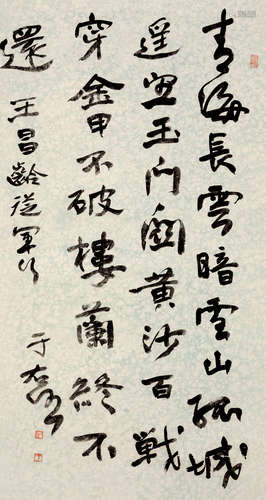 青海長雲暗雪山孤城
遥望玉门關黄沙百戦
穿金甲不破樓蘭終不
還
王昌齡從軍行
于